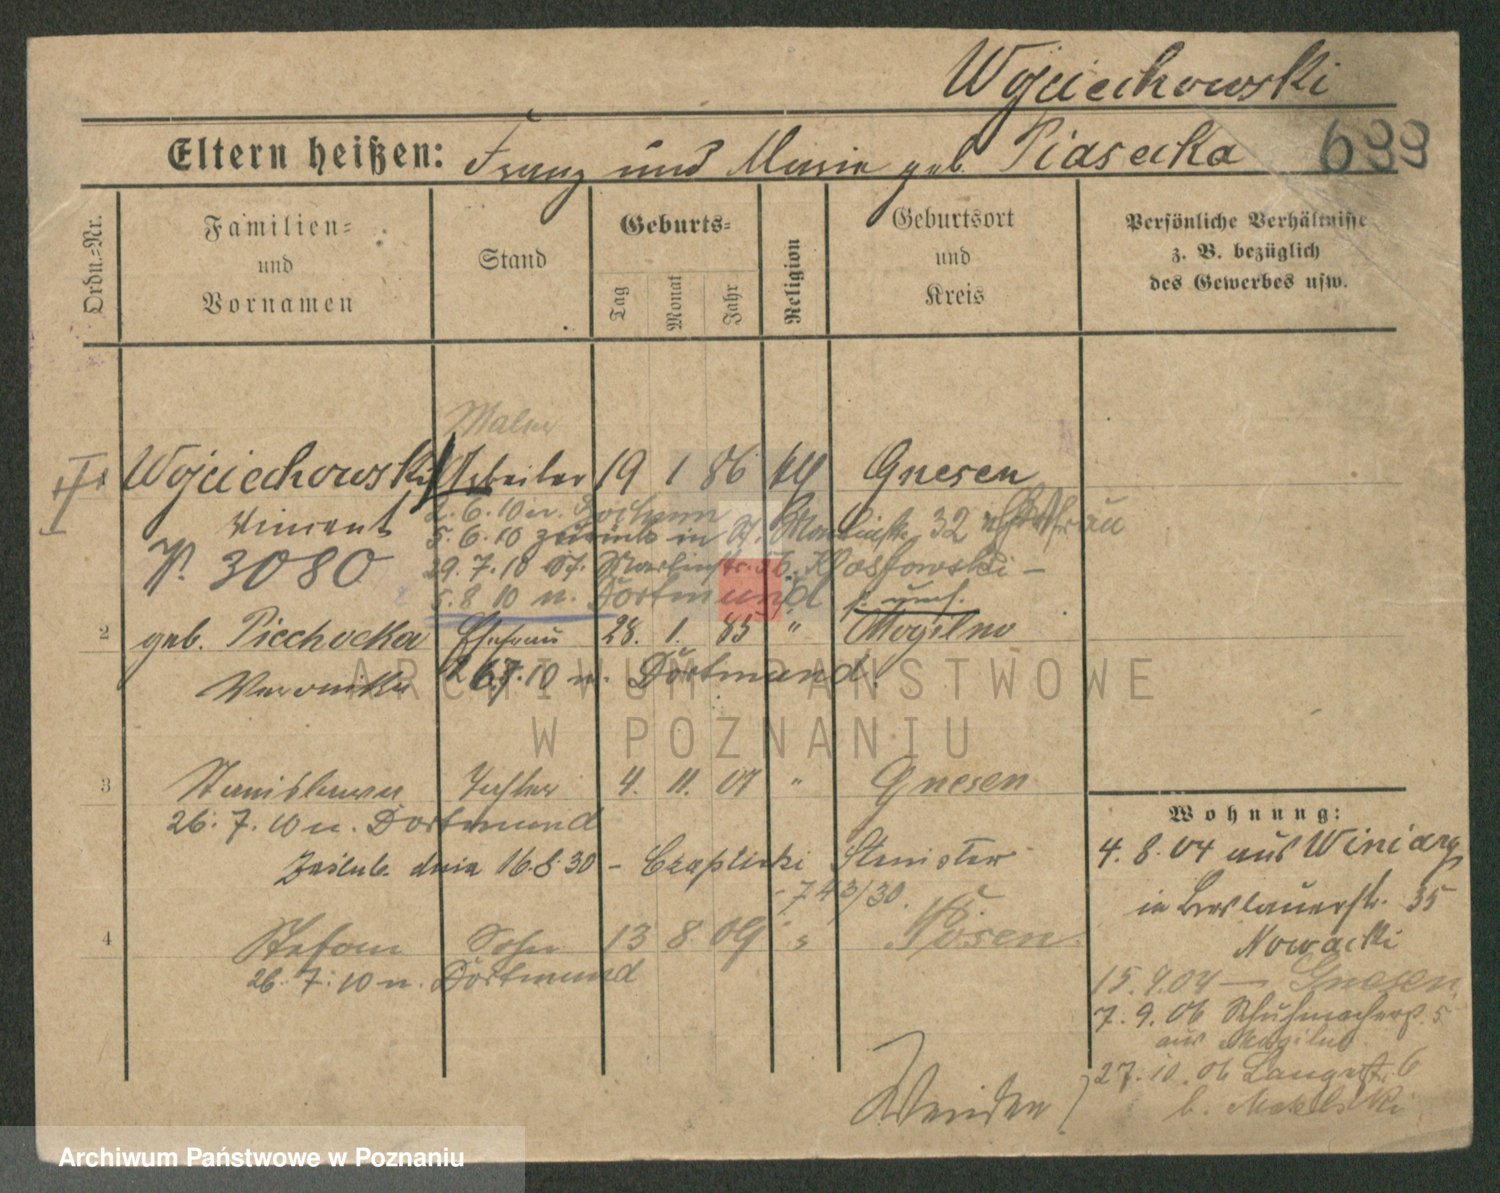 Wojciechowski
Eltern heißen: Franz und Marie geb. Piasecka 699
Ordn.-Nr.
Familien- und Vornamen
Stand
Geburts-
Tag Monat Jahr
Religion
Geburtsort und Kreis
Persönliche Verhältnisse z. B. bezüglich des Gewerbes usw.
Maler
Wojciechowski Arbeiter 19 1 86 Gnesen
Vincent 2.6.10 n. Bochum
5.6.10 zurück in St. Martinstr. 32
P. 3080 29.7.10 St. Martinstr. 56.
5.8.10 n. Dortmund
2 geb. Piechocka Ehefrau 28. 1. 85 " Mogilno
Veronika 26.7.10 n. Dortmund.
3 Stanislawa Tochter 4. 11. 07 " Gnesen
26.7.10 n. Dortmund
Zaślub. dnia 16.8.30 - Czaplicki
743/30.
4 Stefan Sohn 13 8 09 " Posen.
26.7.10 n. Dortmund
Wohnung:
4.8.04 aus Winiary
in Breslauerstr. 35
Nowacki
15.9.04 — Gnesen
7.9.06 Schuhmacherstr. 5
aus Mogilno
27.10.06 Langestr. 6
b.
Wenden
ARCHIWUM PAŃSTWOWE
W POZNANIU
Archiwum Państwowe w Poznaniu